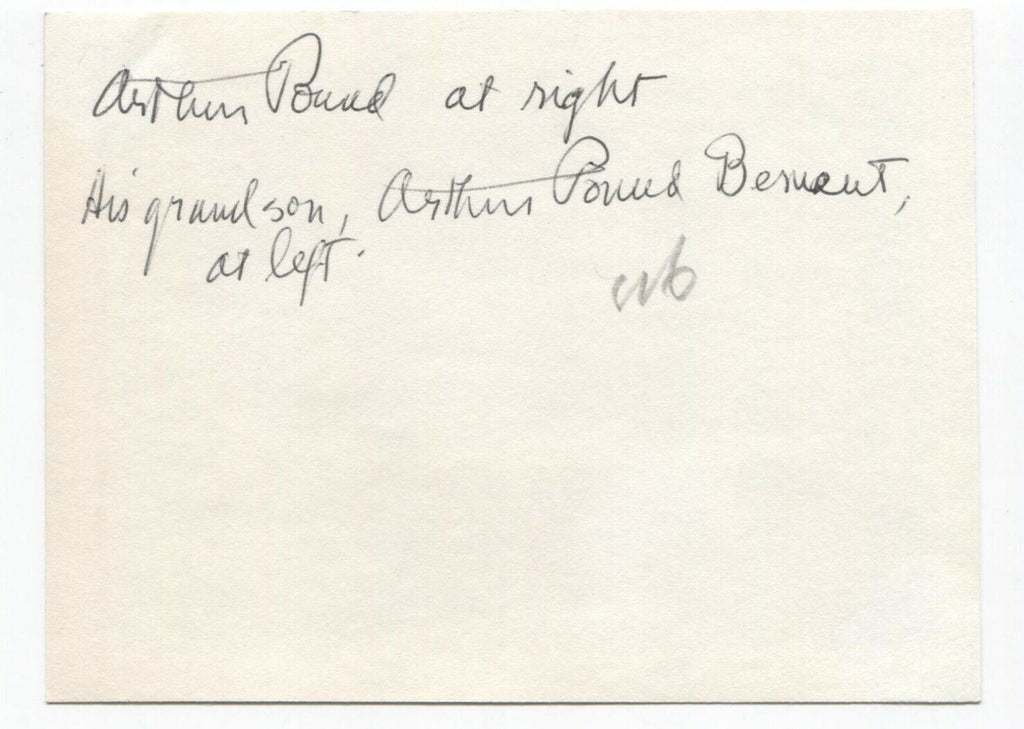 Arthur Pound at right
His grandson, Arthur Pound
at left.